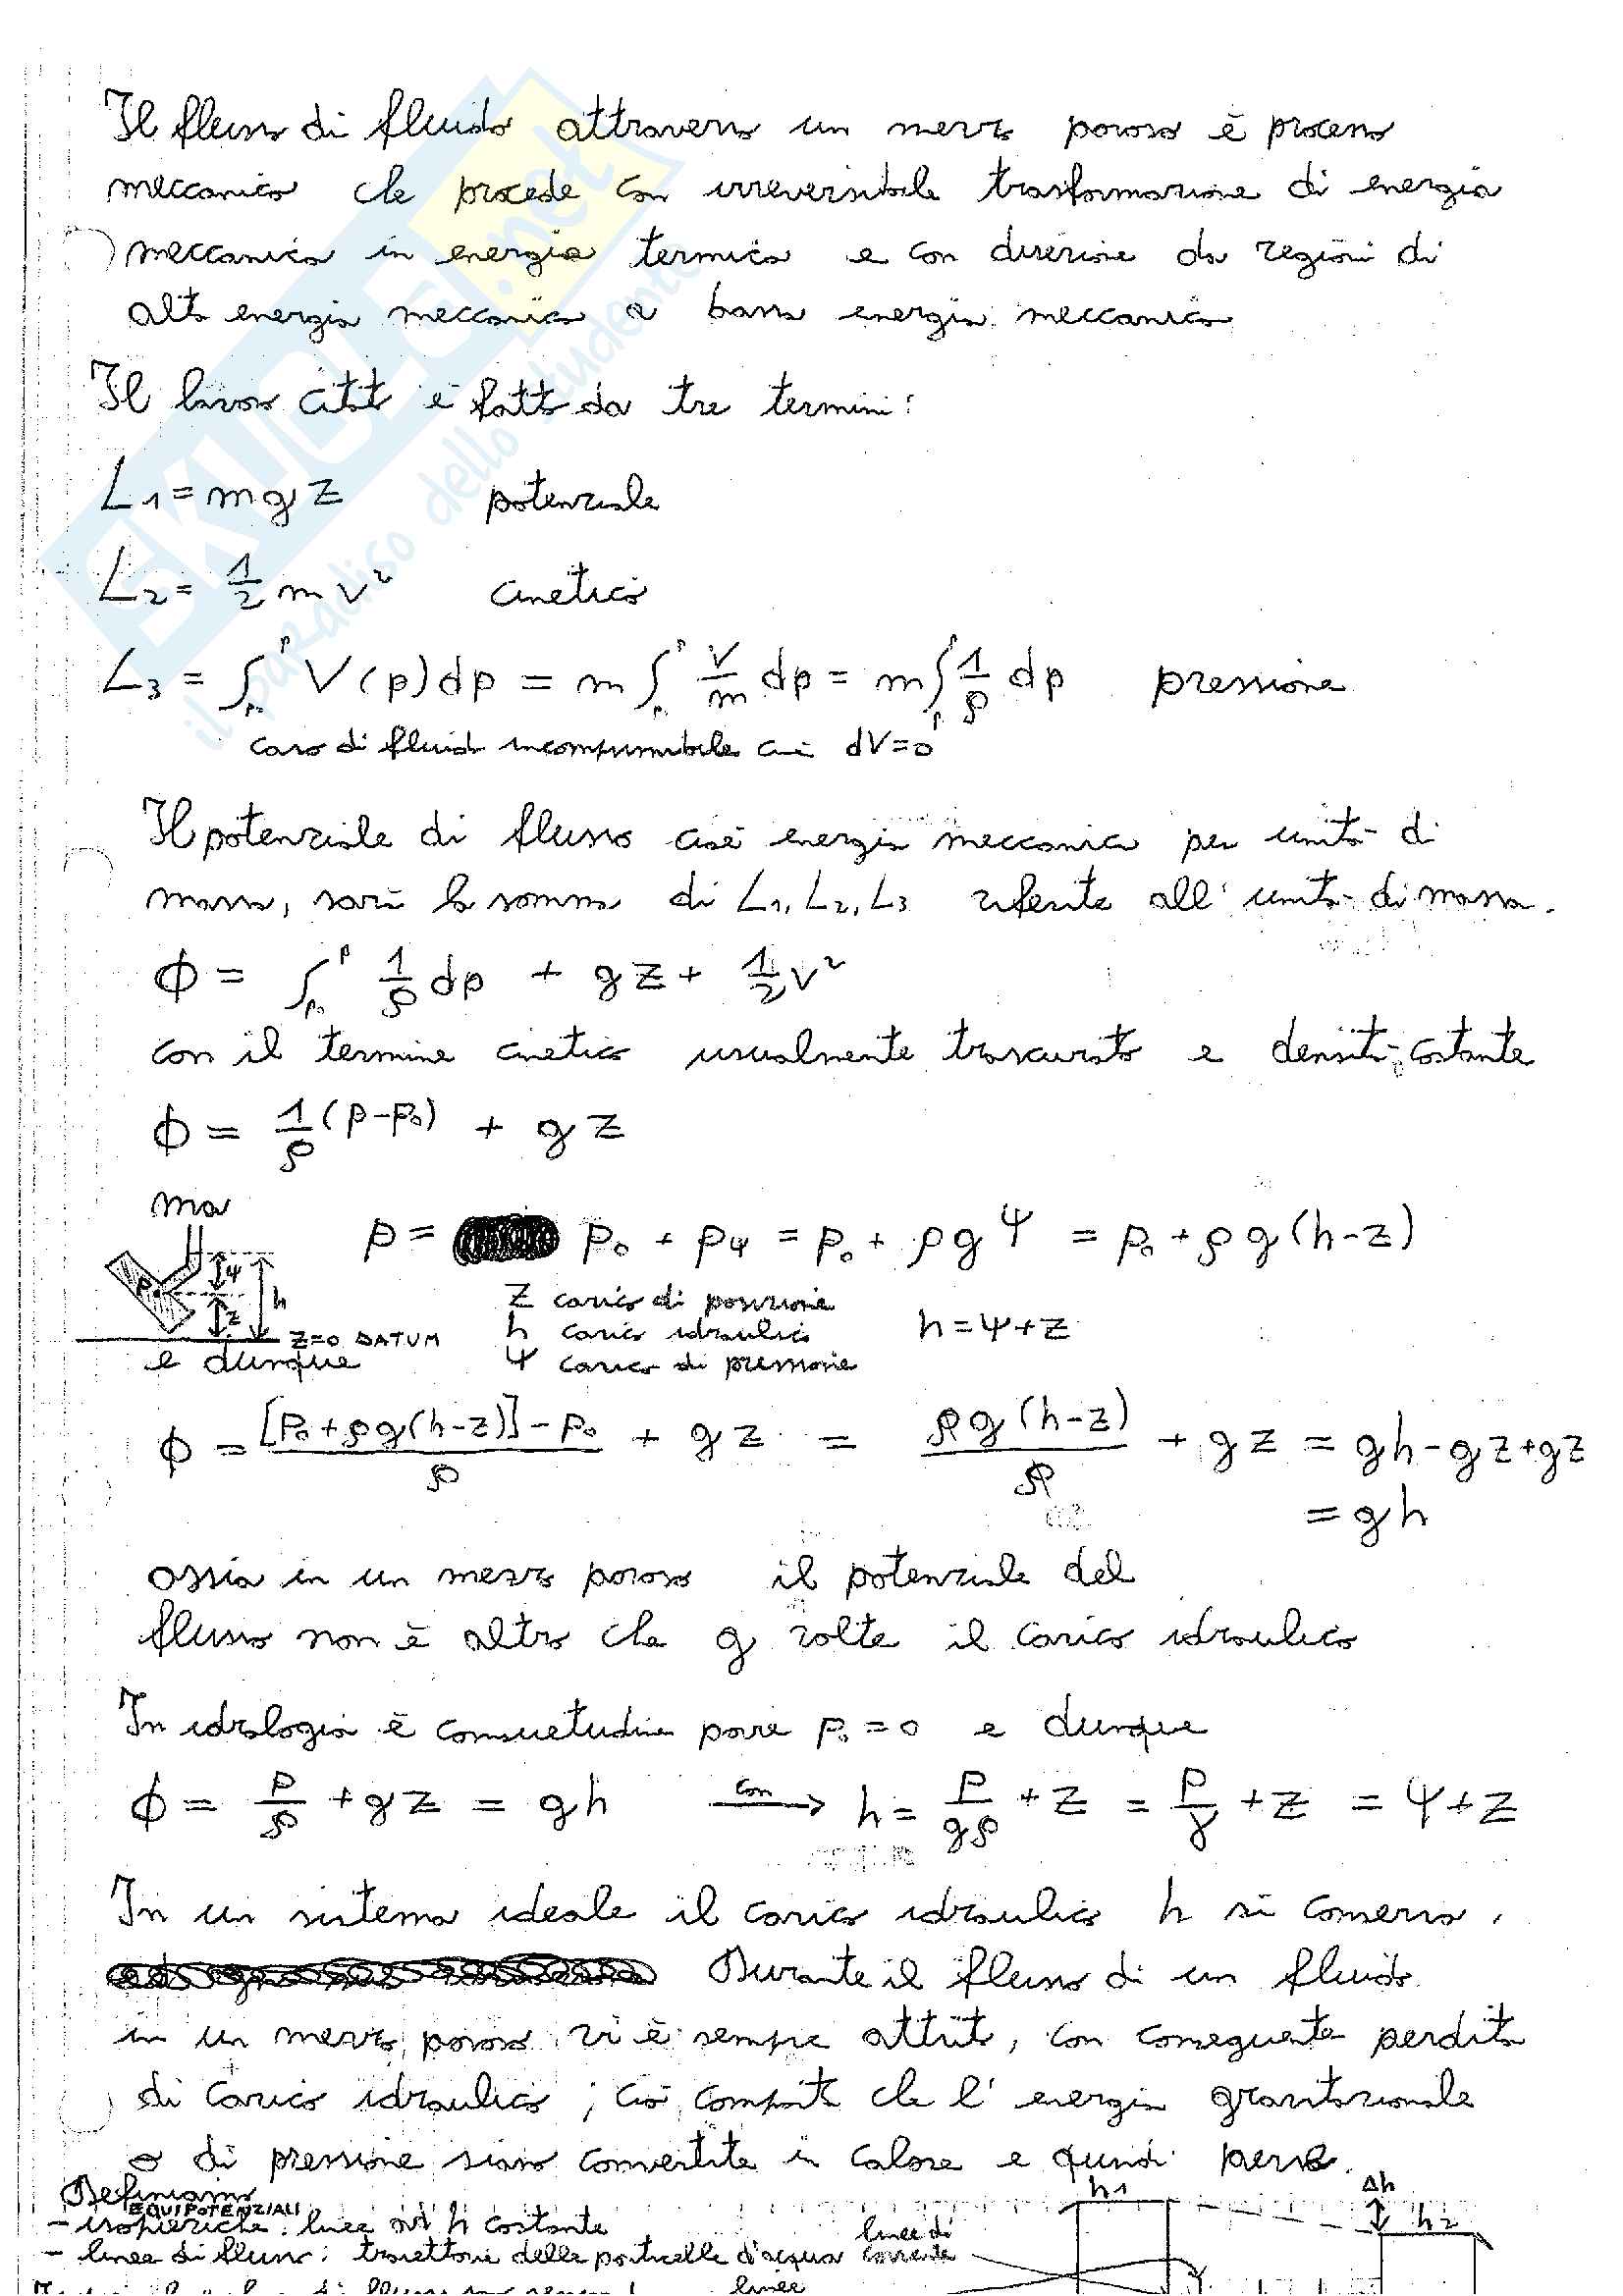 Il flusso di fluido attraverso un mezzo poroso è processo
meccanico che procede con irreversibile trasformazione di energia
meccanica in energia termica e con direzione da regioni di
alta energia meccanica a bassa energia meccanica
Il lavoro citato è fatto da tre termini:
L₁ = mgz potenziale
L₂ = 1/2 m v² cinetico
L₃ = ∫ₚ₀ᵖ V(p)dp = m ∫ₚ₀ᵖ V/m dp = m ∫ₚ₀ᵖ 1/ρ dp pressione
caso di fluido incomprimibile cioè dV=0
Il potenziale di flusso cioè energia meccanica per unità di
massa, sarà la somma di L₁, L₂, L₃ riferita all'unità di massa.
Φ = ∫ₚ₀ᵖ 1/ρ dp + gz + 1/2 v²
con il termine cinetico usualmente trascurato e densità costante
Φ = 1/ρ (p-p₀) + gz
ma
p = p₀ + pψ = p₀ + ρgψ = p₀ + ρg(h-z)
P ψ z h
z carico di posizione
h carico idraulico h=ψ+z
z=0 DATUM
ψ carico di pressione
e dunque
Φ = [p₀+ρg(h-z)]-p₀ / ρ + gz = ρg(h-z) / ρ + gz = gh-gz+gz
= gh
ossia in un mezzo poroso il potenziale del
flusso non è altro che g volte il carico idraulico
In idrologia è consuetudine porre p₀=0 e dunque
Φ = p/ρ + gz = gh con → h = p/gρ + z = p/γ + z = ψ+z
In un sistema ideale il carico idraulico h si conserva.
Durante il flusso di un fluido
in un mezzo poroso vi è sempre attrito, con conseguente perdita
di carico idraulico; ciò comporta che l'energia gravitazionale
o di pressione siano convertite in calore e quindi perse.
Definiamo
EQUIPOTENZIALI
- isopieziche: linee ad h costante
- linee di flusso: traiettorie delle particelle d'acqua
h1 Δh h2
linee di
corrente
linee
EKIDES.net
il paradiso dello studente